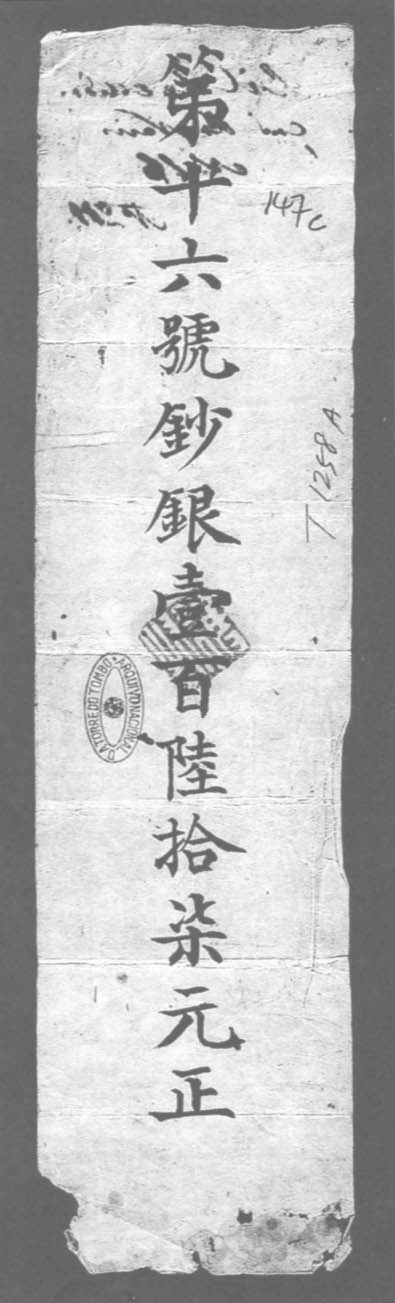 第十六號鈔銀壹百陸拾柒元正
147c
T 1258 A
ARQUIVO NACIONAL DA TORRE DO TOMBO